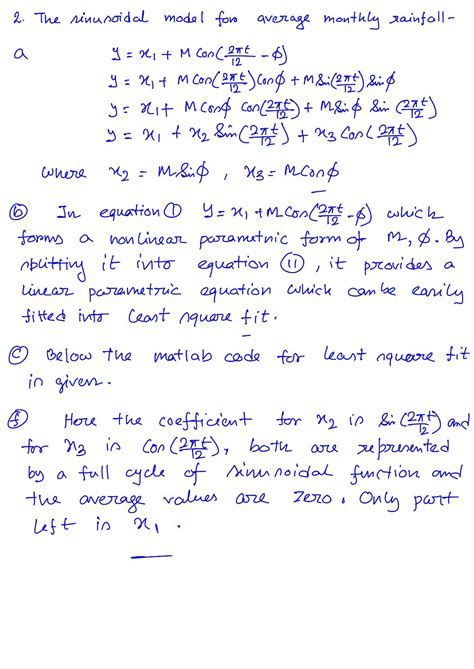 2. The sinusoidal model for average monthly rainfall-
a y = x₁ + M Cos(2πt/12 - φ)
y = x₁ + M Cos(2πt/12) Cosφ + M Sin(2πt/12) Sinφ
y = x₁ + M Cosφ Cos(2πt/12) + M Sinφ Sin(2πt/12)
y = x₁ + x₂ Sin(2πt/12) + x₃ Cos(2πt/12)
where x₂ = M Sinφ , x₃ = M Cosφ
ⓑ In equation ① y = x₁ + M Cos(2πt/12 - φ) which
forms a nonlinear parametric form of M, φ. By
splitting it into equation ⑪, it provides a
linear parametric equation which can be easily
fitted into least square fit.
ⓒ Below the matlab code for least square fit
is given.
ⓕ Here the coefficient for x₂ is Sin(2πt/12) and
for x₃ is Cos(2πt/12), both are represented
by a full cycle of sinusoidal function and
the average values are zero. Only part
left is x₁.